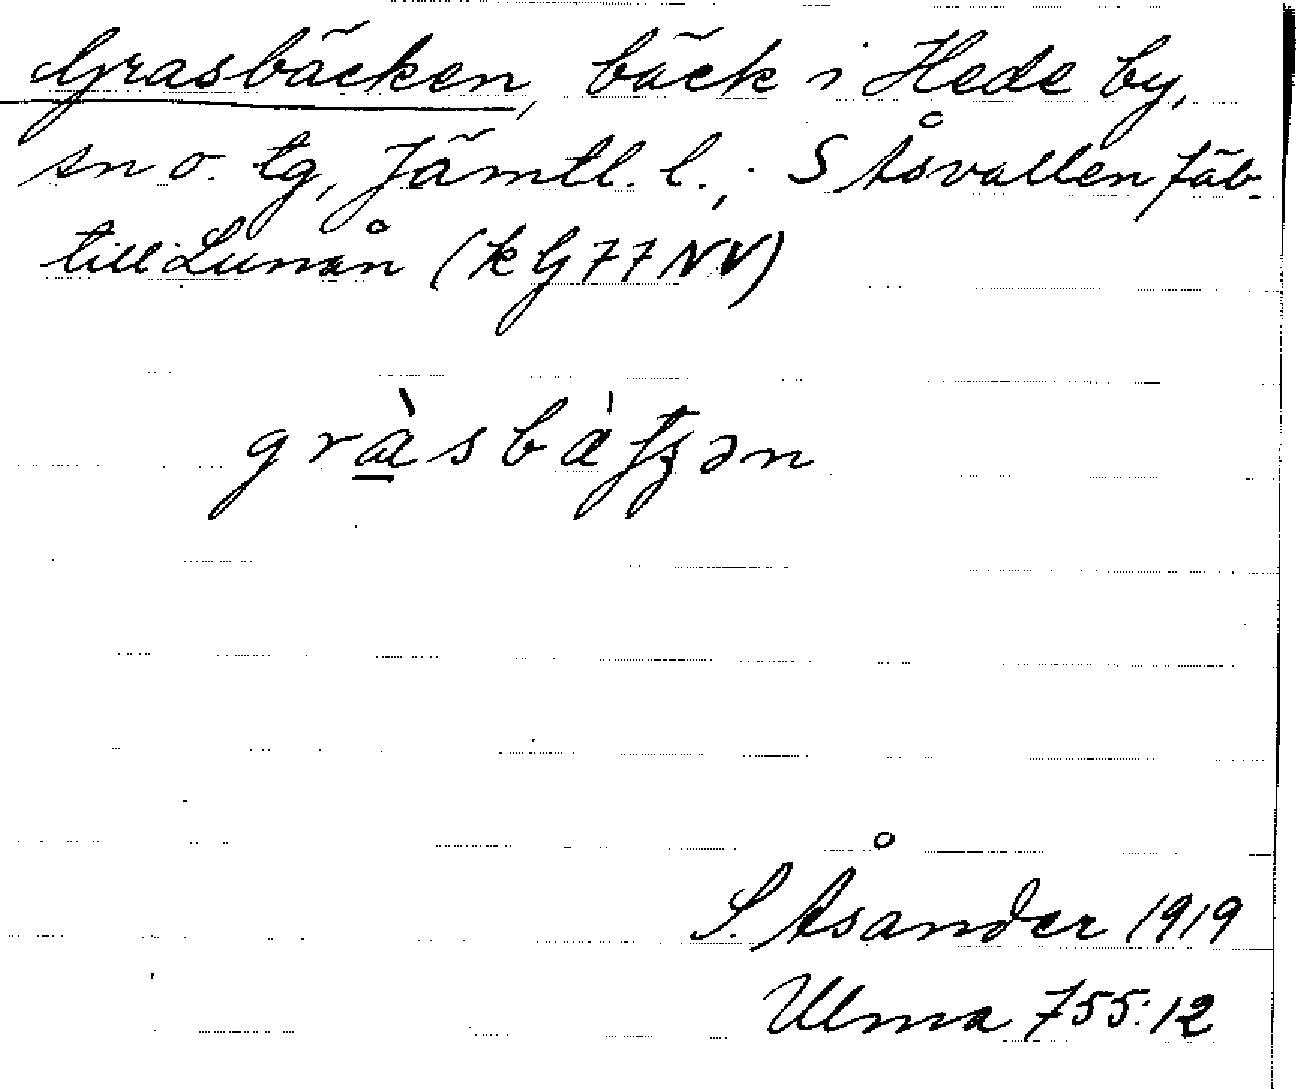 Grasbäcken, bäck i Hede by,
sn o. tg, Jämtl. l., S Åsvallen fäb.
till Lunån (k G 77 NV)
S. Åsander 1919
Ulma 755:12